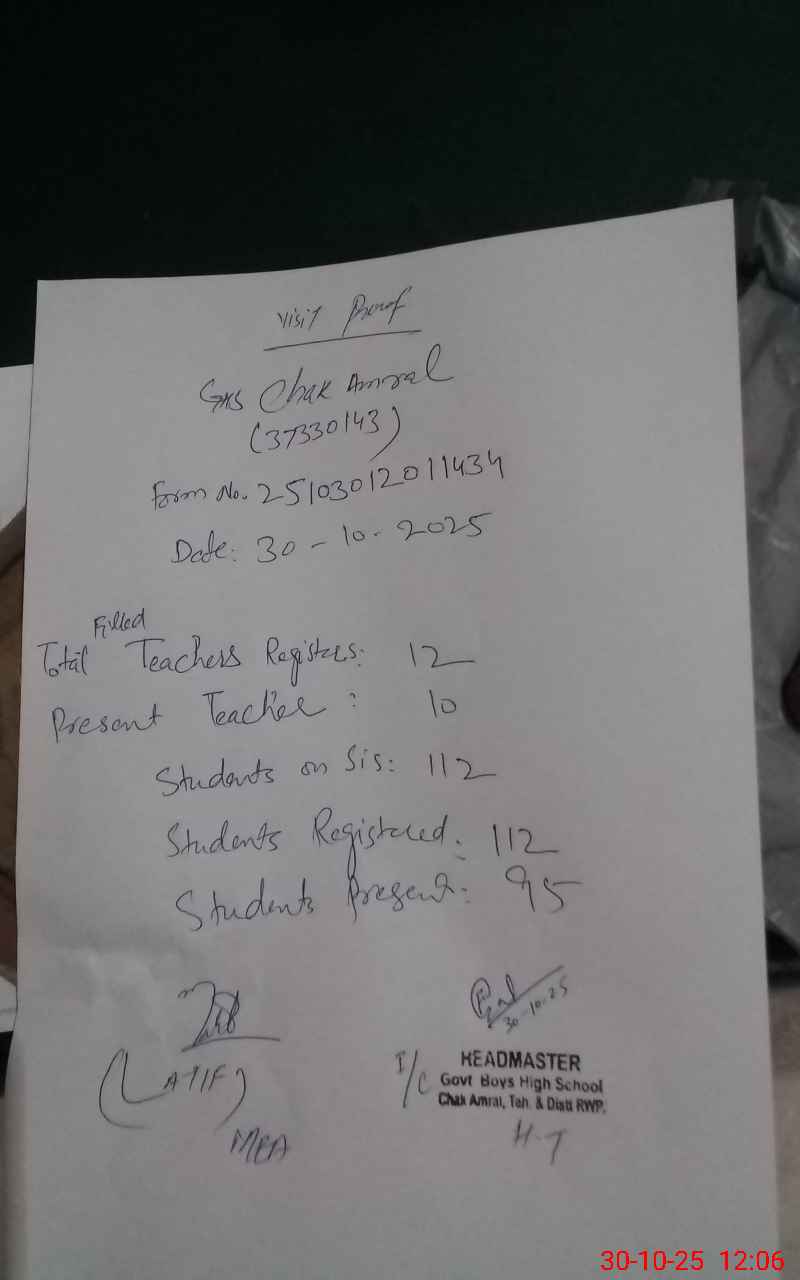 Visit Proof
GHS Chak Amral
(37330143)
Form No. 25103012011434
Date: 30-10-2025
Filled
Total Teachers Registers: 12
Present Teacher: 10
Students on Sis: 112
Students Registered: 112
Students Present: 95
30-10-25
(LATIF)
MEA
I/C HEADMASTER
Govt Boys High School
Chak Amral, Teh. & Distt RWP.
H-T
30-10-25 12:06